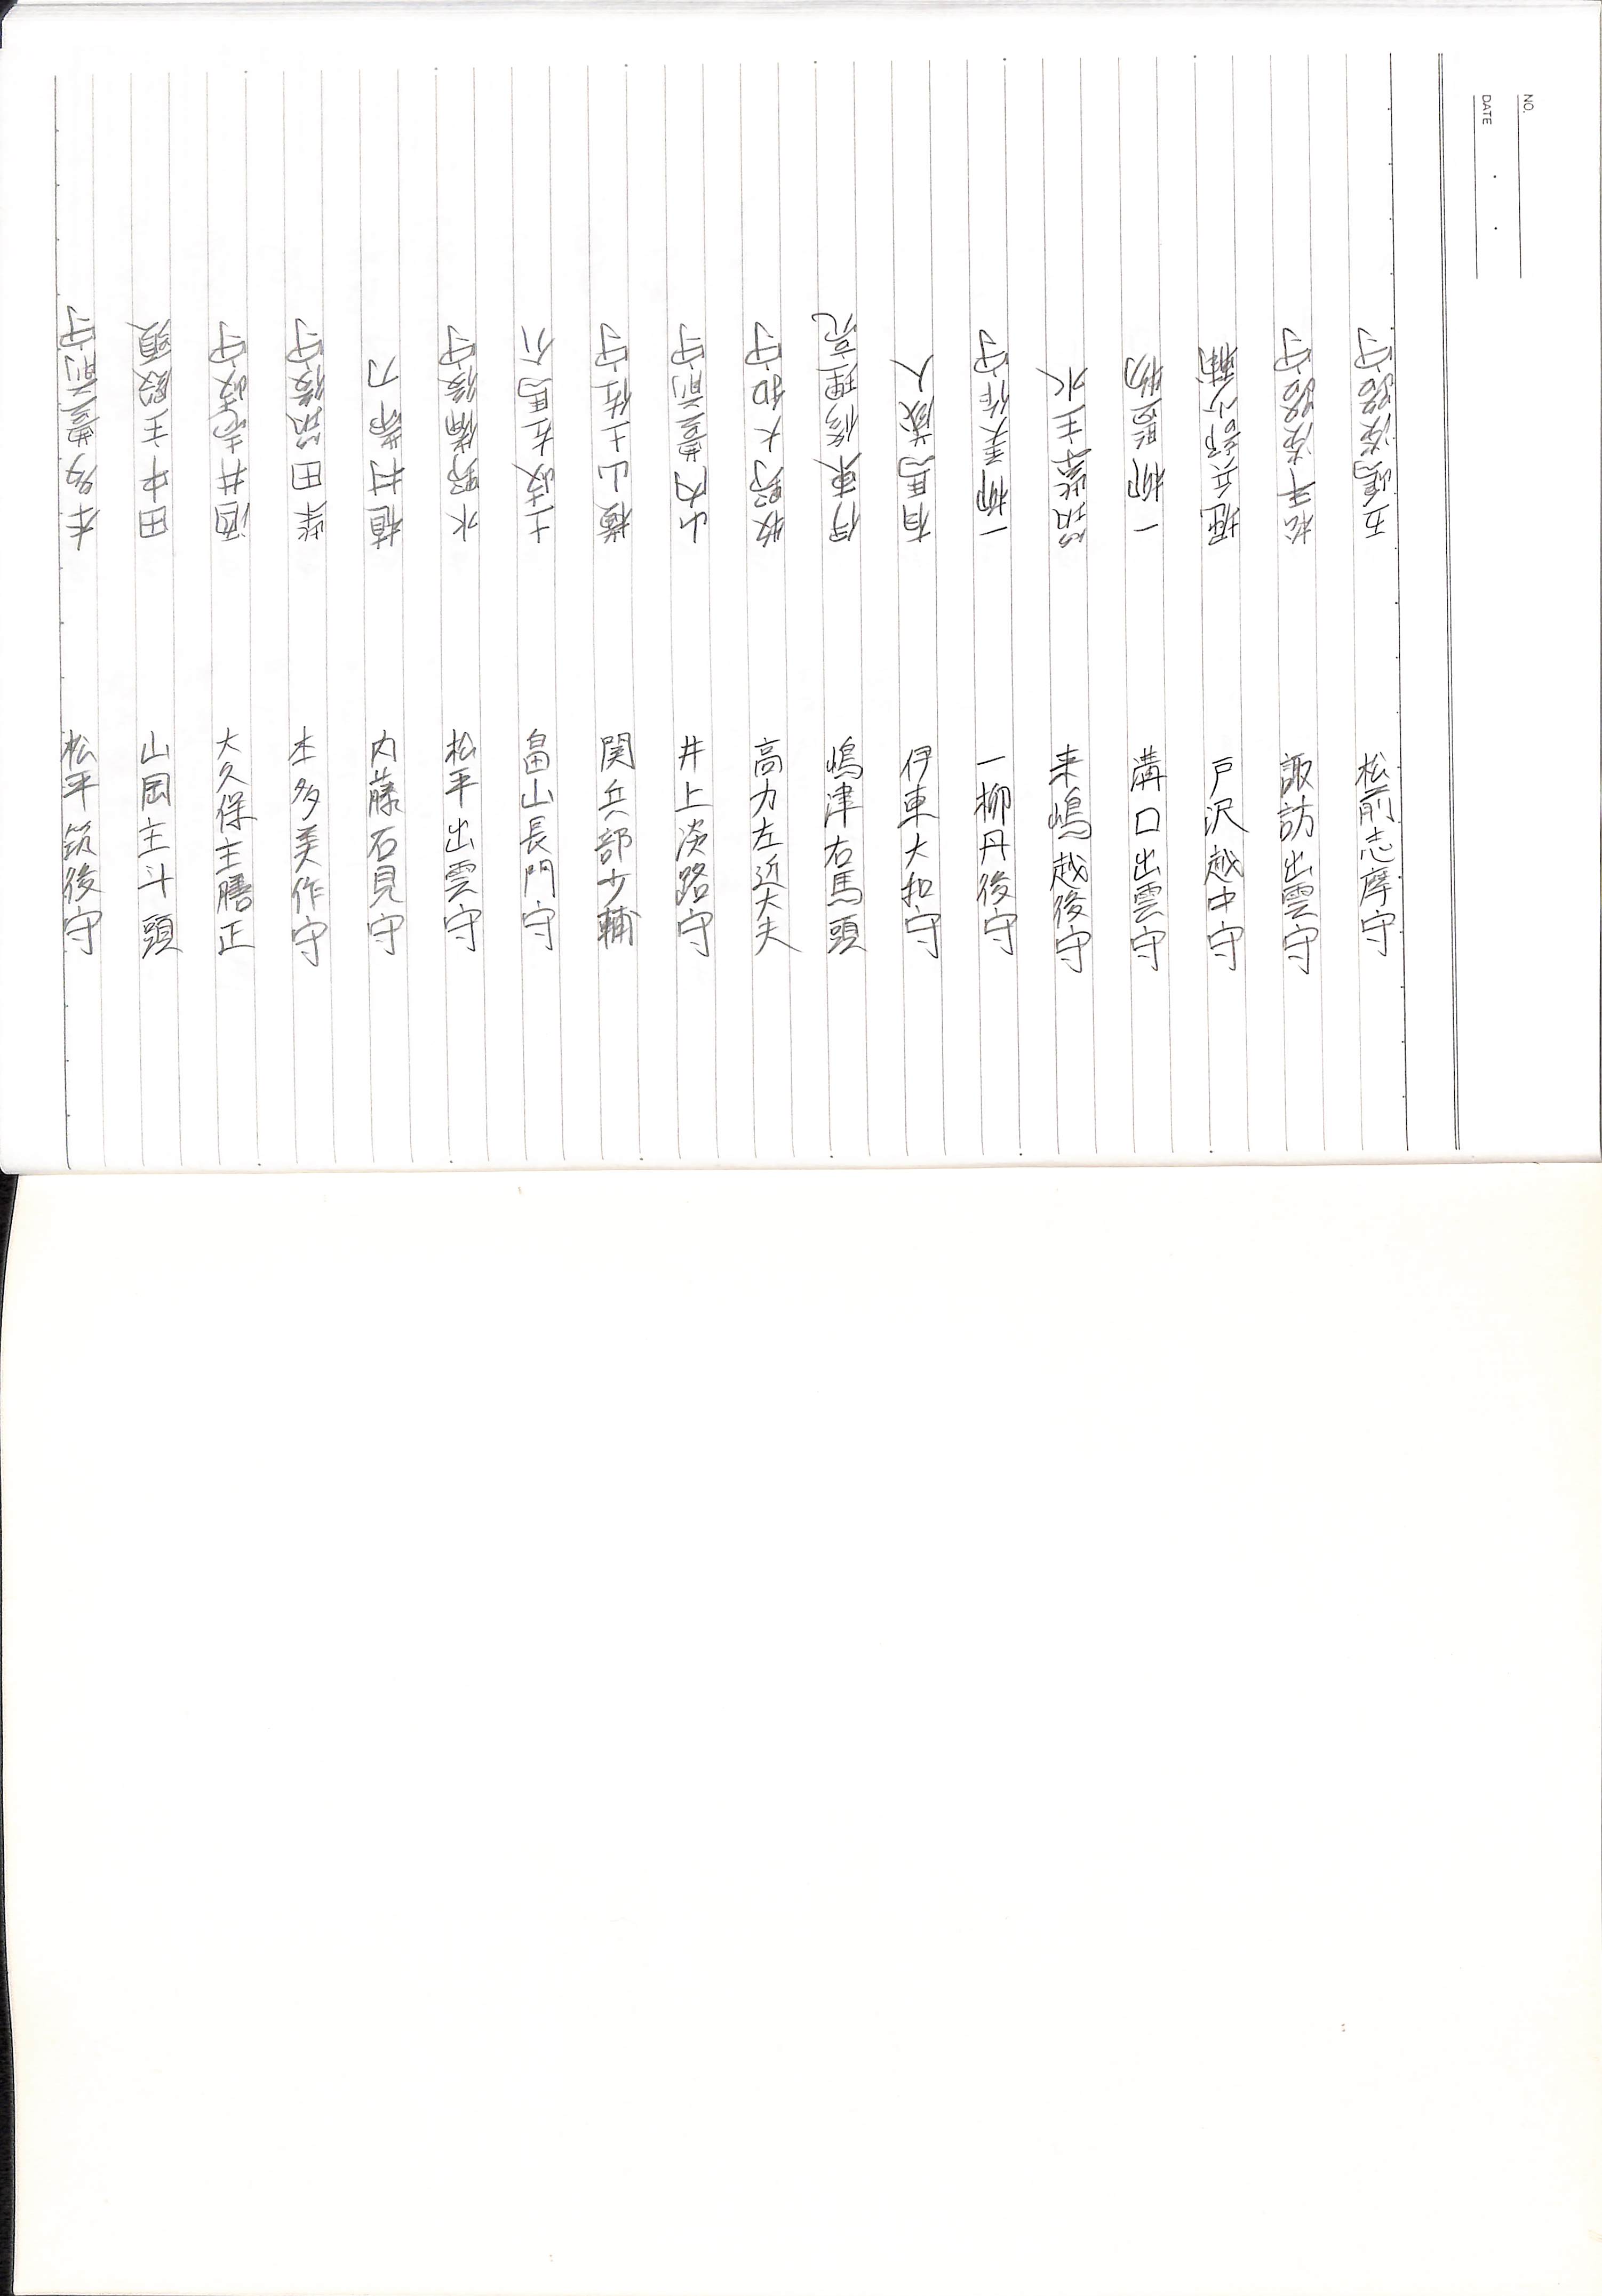 NO.
DATE
松前志摩守
諏訪出雲守
戸沢越中守
溝口出雲守
来嶋越後守
一柳丹後守
伊東大和守
嶋津右馬頭
高力左近大夫
井上淡路守
関兵部少輔
畠山長門守
松平出雲守
内藤石見守
本多美作守
大久保主膳正
山岡主斗頭
松平筑後守
本多豊前守
田中主殿頭
酒井壱岐守
柴田筑後守
植村帯刀
水野備後守
土岐左馬介
横山土佐守
山内豊前守
牧野大和守
伊東修理亮
有馬蔵人
一柳美作守
筑紫主水
一柳監物
堀兵部少輔
松平淡路守
五嶋淡路守